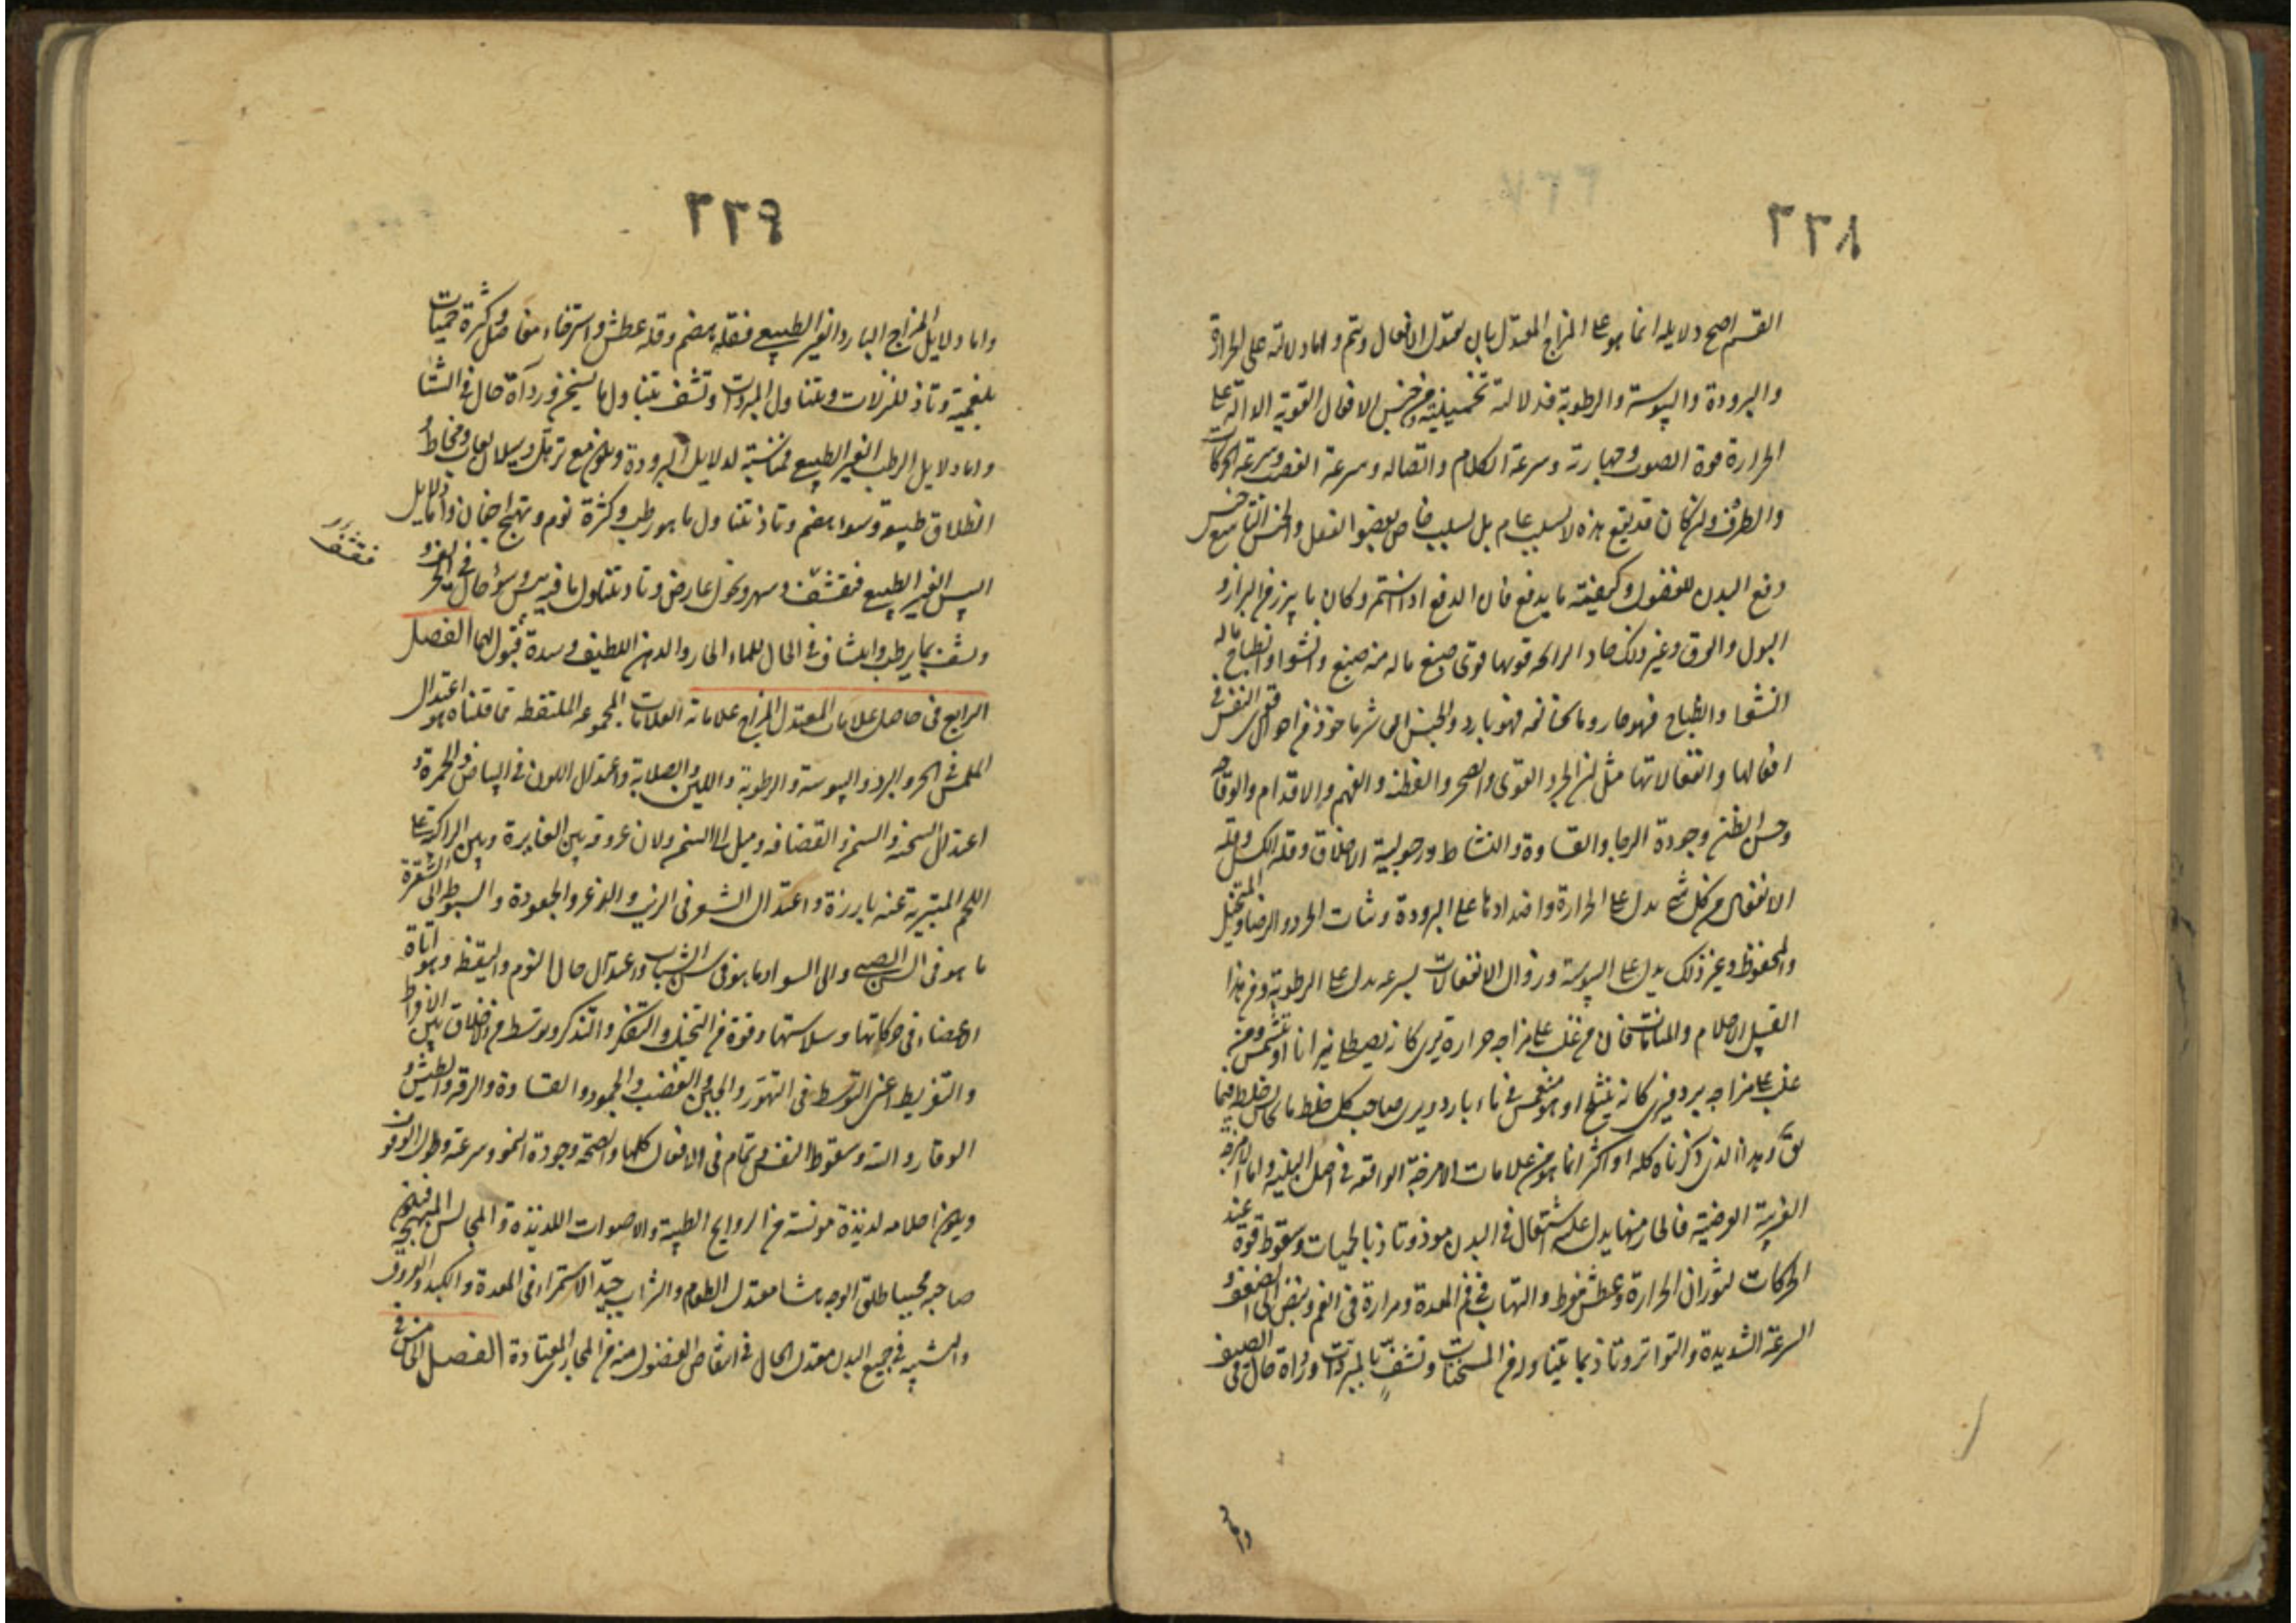 ٢٢٨
القسم اصح دلايله انما هو على المزاج المعتدل بان يعتدل الافعال ويتم واما دلالته على الحرارة
والبرودة واليبوسة والرطوبة فدلالة تخمينية ومن جنس الافعال القوية الدالة على
الحرارة قوة الصوت وجهارته وسرعة الكلام واتصاله وسرعة الغضب وسرعة الحركات
والطرف وان كان قد يقع هذه لا لسبب عام بل لسبب خاص بعضو الفعل والجنس التاسع جنس
دفع البدن للفضول وكيفية ما يدفع فان الدفع اذا استمر وكان ما يبرز من البراز و
البول والعرق وغير ذلك حاد الرايحة قويها قوى صبغ ما له منه صبغ وانشواء وانطباخ ما له
انشوا وانطباخ فهو حار وما يخالفه فهو بارد والجنس العاشر ماخوذ من احوال قوى النفس في
افعالها وانفعالاتها مثل ان الحرد القوى والضجر والفطنة والفهم والاقدام والوقاحة
وحسن الظن وجودة الرجا والقساوة والنشاط ورجولية الاخلاق وقلة الكسل وقلة
الانفعال من كل شى يدل على الحرارة واضدادها على البرودة وثبات الحرد والرضا والمتخيل
والمحفوظ وغير ذلك يدل على اليبوسة وزوال الانفعالات بسرعه يدل على الرطوبة ومن هذا
القبيل الاحلام والمنامات فان من غلب على مزاجه حرارة يرى كانه يصطلى نيرانا او يتشمس ومن
غلب على مزاجه برد فيرى كانه يثلج او هو منغمس في ماء بارد ويرى صاحب كل خلط ما يجانس خلطه فيما
يق وهذا الذى ذكرناه كله او اكثره انما هو من علامات الامزجة الواقعة في اصل البنية واما الامزجة
الغريبة العرضية فالحار منها يدل عليه اشتعال في البدن موذ وتاذ بالحميات وسقوط قوة عند
الحركات لثوران الحرارة وعطش مفرط والتهاب في فم المعدة ومرارة في الفم ونبض الى الضعف و
السرعة الشديدة والتواتر وتاذ بما يتناوله من المسخنات وتشف بالمبردات ورداة حال في الصيف
واما
٢٢٩
واما دلايل المزاج البارد الغير الطبيعي فقلة هضم وقلة عطش واسترخاء مفاصل وكثرة حميات
بلغمية وتاذ للنزلات وبتناول المبردات وتشف بتناول ما يسخن ورداة حال في الشتا
واما دلايل الرطب الغير الطبيعي فمناسبة لدلايل البرودة ويكون مع ترهل وسيلان لعاب ومخاط و
انطلاق طبيعة وسوء هضم وتاذ بتناول ما هو رطب وكثرة نوم وتهيج اجفان واما دلايل
اليبس الغير الطبيعي فتقشف وسهر ونحول عارض وتاذ بتناول ما فيه يبس وسؤ حال في الخريف
وتشف بما يرطب وانتشاف في الحال للماء الحار والدهن اللطيف وشدة قبول لهما الفصل
الرابع في حاصل علامات المعتدل المزاج علاماته العلامات المجموعه الملتقطه مما قلناه هو اعتدال
الملمس في الحر والبرد واليبوسة والرطوبة واللين والصلابة واعتدال اللون في البياض والحمرة و
اعتدال السحنه في السمن والقضافه وميل الى السمن ولان عروقه بين الغايرة وبين الراكبة على
اللحم المتبرية عنه بارزة واعتدال الشعر في الزبب والزعر والجعودة والسبوطة الى الشقرة
ما هو في السن الصبى والى السواد ما هو في سن الشباب واعتدال حال النوم واليقظه ومواتاة
الاعضاء في حركاتها وسلاستها وقوة من التخيل والتفكر والتذكر وتوسط من الاخلاق بين الافراط
والتفريط اعنى التوسط في التهور والجبن والغضب والجمود والقساوة والرقة والطيش و
الوقار والتيه وسقوط النفس وتمام في الافعال كلها والصحة وجودة النمو وسرعته وطول الوقوف
ويكون احلامه لذيذة مونسة من الروايح الطيبة والاصوات اللذيذه والمجالس البهيجة فيكون
صاحبه محببا طلق الوجه هشا معتدل الطعام والشراب جيد الاستمراء في المعدة والكبد والعروق
والشبيه في جميع البدن معتدل الحال في انتفاض الفضول منه من المجارى المعتادة الفصل الخامس في